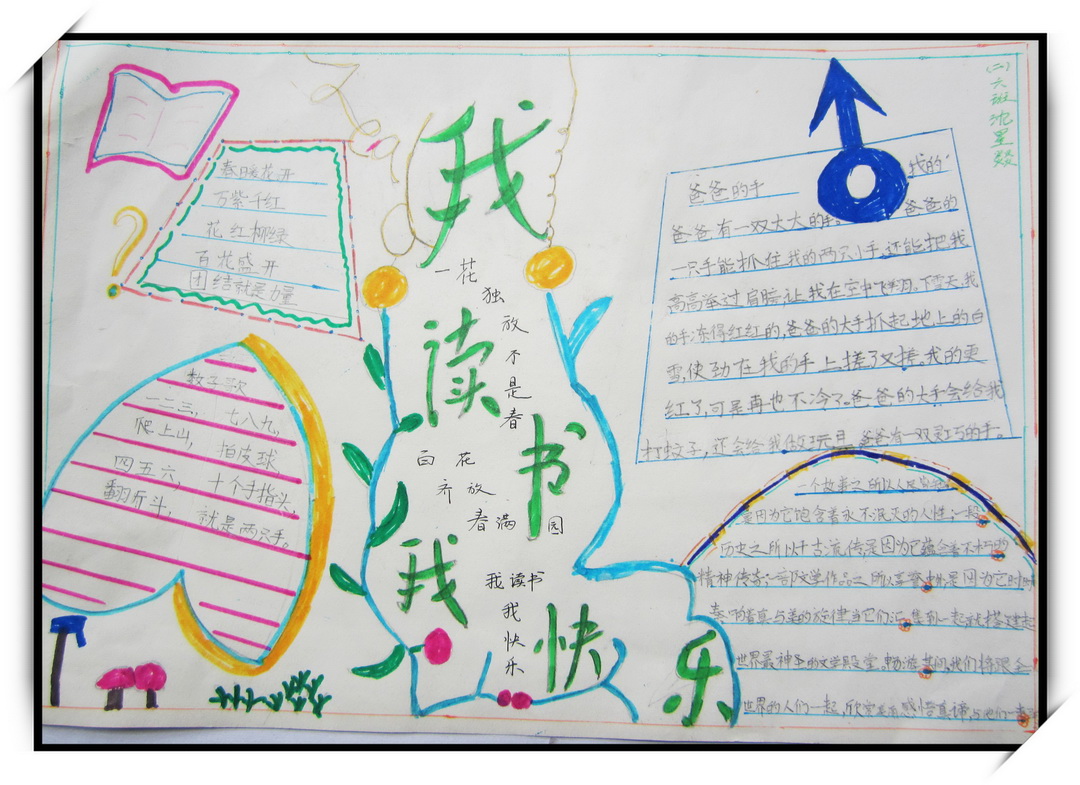 我读书我快乐
(二)六班
春日暖花开
万紫千红
花红柳绿
百花盛开
团结就是力量
数子歌
一二三, 七八九,
爬上山, 拍皮球,
四五六, 十个手指头,
翻斤斗, 就是两只手。
一花独放不是春
百花齐放春满园
我读书我快乐
爸爸的手
我的
爸爸有一双大大的手。爸爸的
一只手能抓住我的两只小手,还能把我
高高举过肩膀,让我在空中飞翔。下雪天,我
的手冻得红红的,爸爸的大手抓起地上的白
雪,使劲在我的手上搓了又搓。我的更
红了,可是再也不冷了。爸爸的大手会给我
打蚊子,还会给我做玩具。爸爸有一双灵巧的手。
一个故事之所以
是因为它饱含着永不泯灭的人性;一段
历史之所以千古流传是因为它蕴含着不朽的
精神传奇;一部文学作品之所以是因为它时时
奏响着真与美的旋律当它们汇集到一起就搭建起
世界最神圣的文学殿堂。畅游其间,我们将跟全
世界的人们一起,欣赏感悟真谛,与他们一